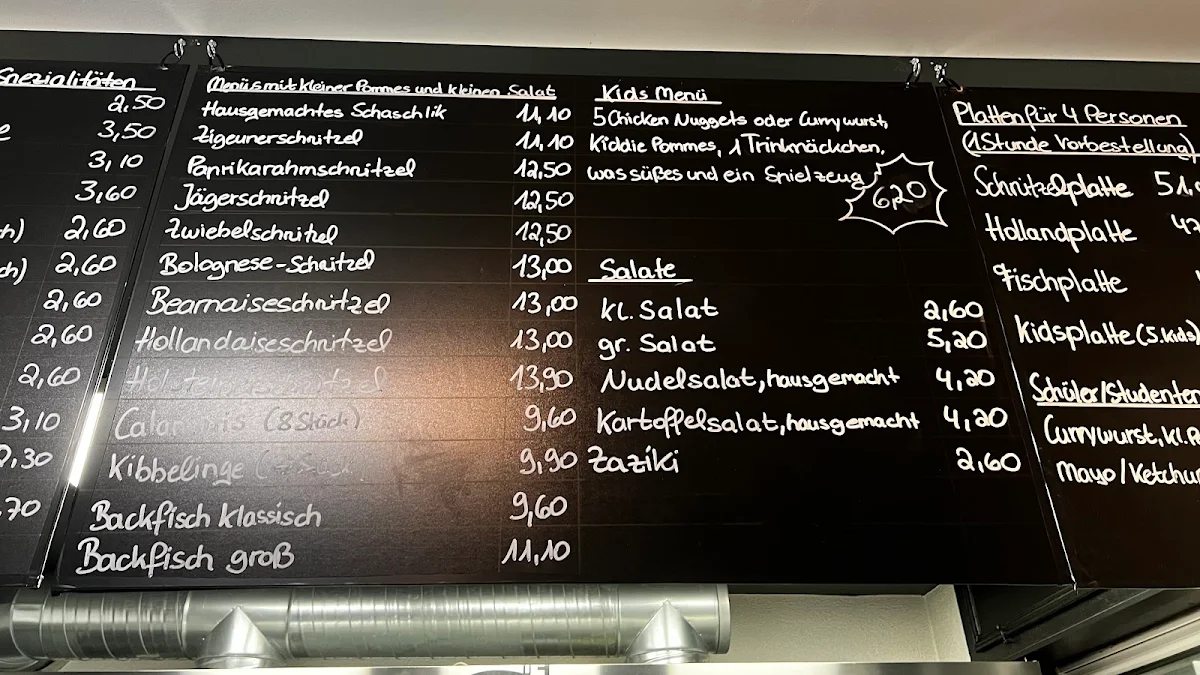 Spezialitäten
2,50
3,50
3,10
3,60
2,60
2,60
2,60
2,60
2,60
3,10
,30
,70
Menüs mit kleiner Pommes und kleinen Salat
Hausgemachtes Schaschlik 11,10
Zigeunerschnitzel 11,10
Paprikarahmschnitzel 12,50
Jägerschnitzel 12,50
Zwiebelschnitzel 12,50
Bolognese-Schnitzel 13,00
Bearnaiseschnitzel 13,00
Hollandaiseschnitzel 13,00
13,90
(8 Stück) 9,60
Kibbelinge 9,90
Backfisch klassisch 9,60
Backfisch groß 11,10
Kids Menü
5 Chicken Nuggets oder Currywurst,
Kiddie Pommes, 1 Trinkpäckchen,
was süßes und ein Spielzeug 6,20
Salate
kl. Salat 2,60
gr. Salat 5,20
Nudelsalat, hausgemacht 4,20
Kartoffelsalat, hausgemacht 4,20
Zaziki 2,60
Platten für 4 Personen
(1 Stunde Vorbestellung)
Schnitzelplatte 51,
Hollandplatte
Fischplatte
Kidsplatte (5.Kids)
Schüler/Studenten
Currywurst, kl.
Mayo/Ketchu